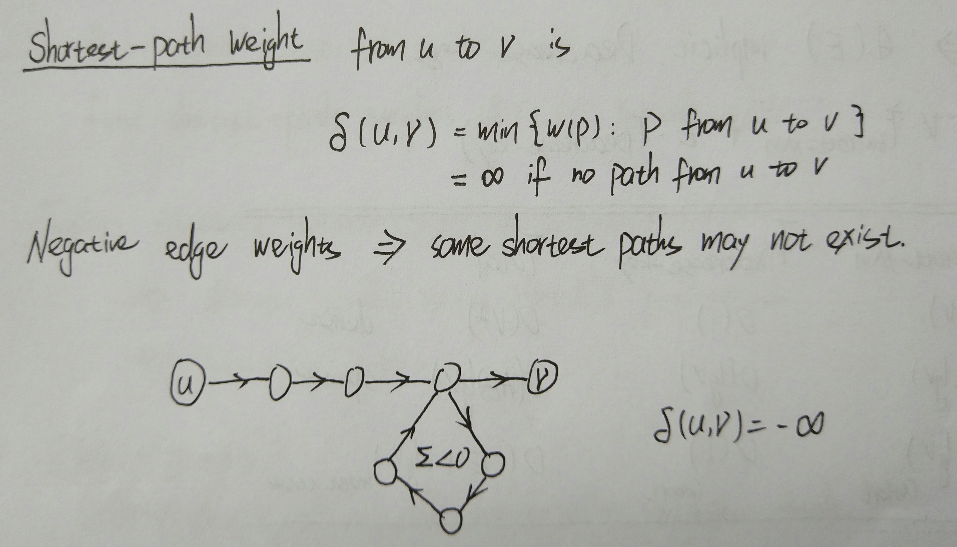 Shortest-path Weight from u to v is
δ(u,v) = min {w(p): p from u to v}
= ∞ if no path from u to v
Negative edge weights ⇒ some shortest paths may not exist.
u v
δ(u,v) = -∞
Σ<0